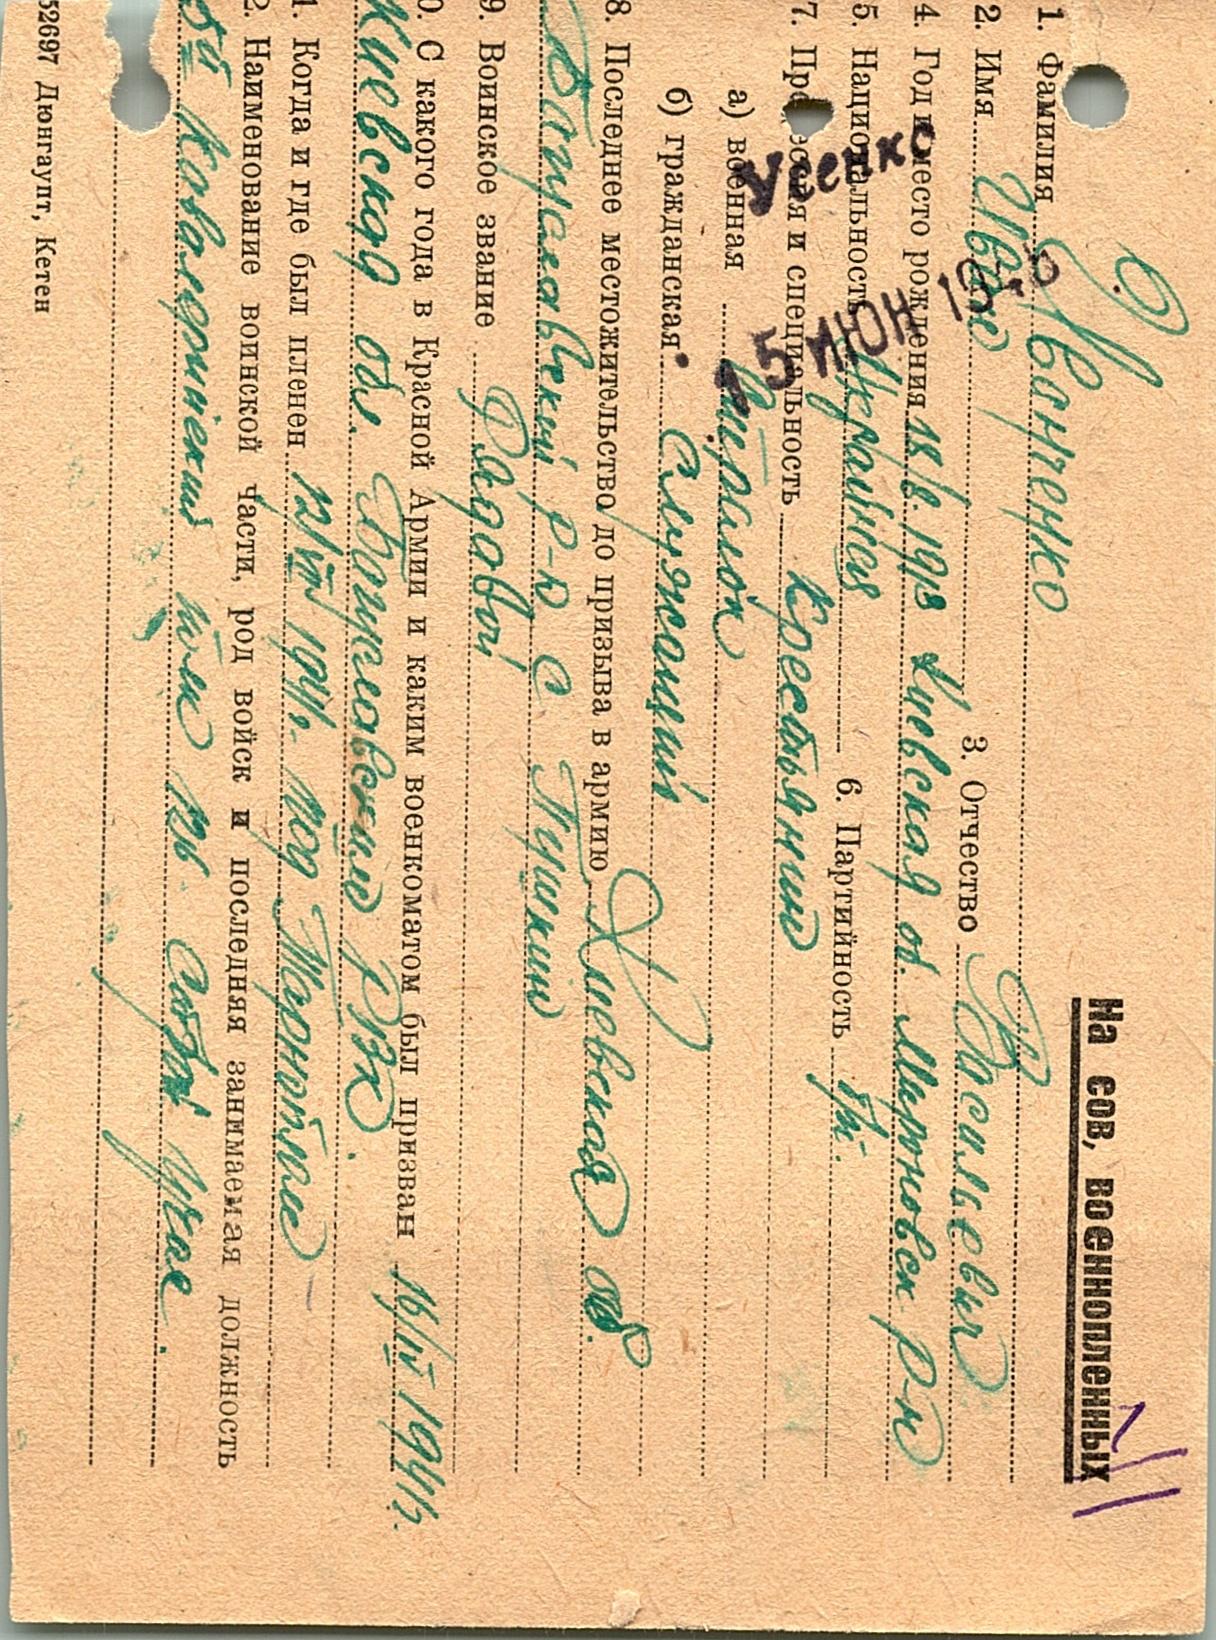 На сов, военнопленных
1. Фамилия Иванченко
2. Имя Иван 3. Отчество Васильевич
4. Год и место рождения 1918 Киевская об. Мироновск р-н
5. Национальность Украинец 6. Партийность б/п.
7. Профессия и специальность Крестьянин
а) военная
б) гражданская. Служащий
8. Последнее местожительство до призыва в армию Киевская об.
Богуславский р-н С
9. Воинское звание Рядовой
0. С какого года в Красной Армии и каким военкоматом был призван 1941г.
Киевской обл. Богуславским РВК.
1. Когда и где был пленен 1941г. под
2. Наименование воинской части, род войск и последняя занимаемая должность
Кавалерийский полк
52697 Дюнгаупт, Кетен
Усенко
15 ИЮН 194